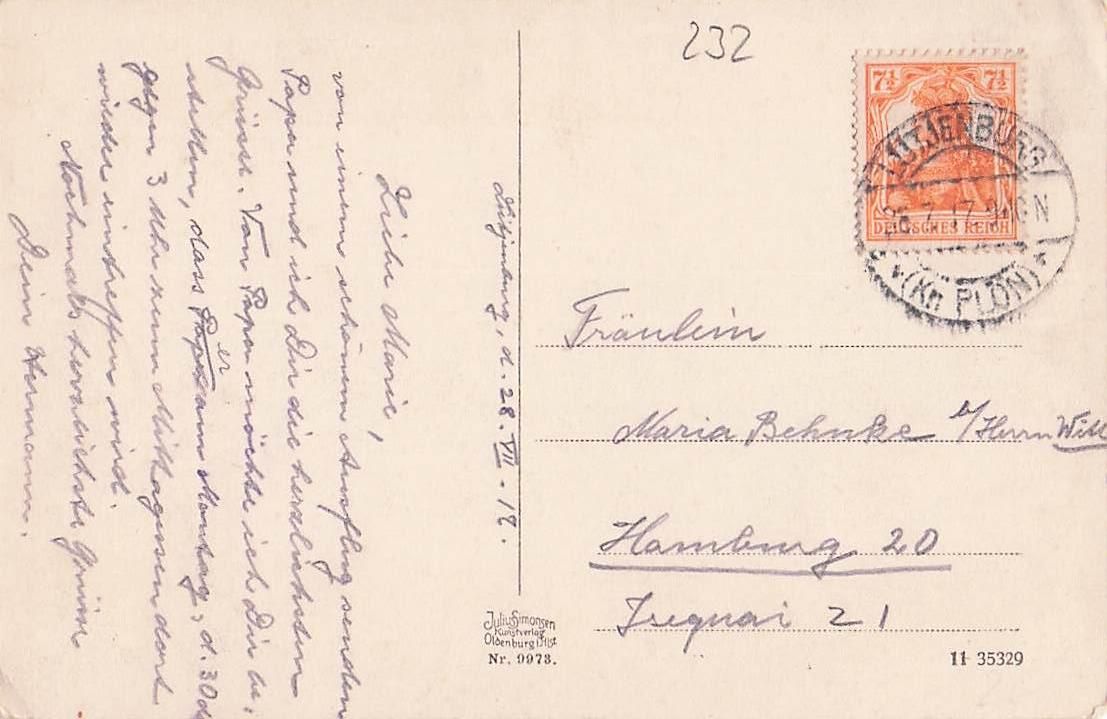 232
7½ 7½
DEUTSCHES REICH
LÜTJENBURG
7. 17. 9-10 N
(Kr. PLÖN)
Lütjenburg, d. 28. VII. 17.
Liebe Marie,
von einem schönen Ausflug senden
Papa und ich Dir die herzlichsten
Grüsse. Von Papa möchte ich Dir be-
stellen, dass er Montag, d. 30 d
gegen 3 Uhr zum Mittagessen dort
wieder eintreffen wird.
Nochmals herzlichste Grüsse
Dein Hermann.
Fräulein
Maria Behnke b/Herrn Witt
Hamburg 20
Isequai 21
Julius Simonsen
Kunstverlag
Oldenburg i. Hlst
Nr. 9973.
11 35329